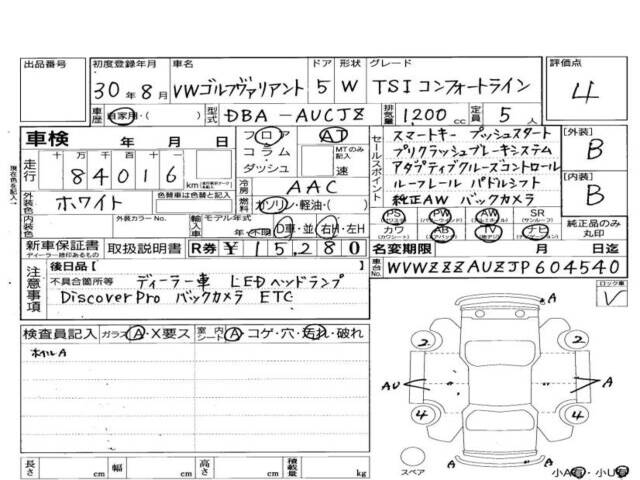 出品番号
初度登録年月 30年8月
車名 VWゴルフヴァリアント
ドア 5
形状 W
グレード TSI コンフォートライン
評価点 4
車歴 自家用・( )
型式 DBA-AUCJZ
排気量 1,200 cc
定員 5人
車検 年 月 日
フロア
コラム
ダッシュ
AT
MTのみ記入
速
走行 十万 万 千 百 十 一
84016 km
現在色を記入
外装色 ホワイト
色替車は色替と記入
内装色
外装カラーNo.
冷房 AAC
燃料 ガソリン・軽油・( )
輸入車 モデル年式 年
D車・並
右H・左H
新車保証書
ディーラー捺印あるもの
取扱説明書
R券 ¥15,280
セールスポイント
スマートキー プッシュスタート
プリクラッシュブレーキシステム
アダプティブクルーズコントロール
ルーフレール パドルシフト
純正AW バックカメラ
PS PW AW SR
(サンルーフ)
カワ AB TV ナビ
[外装] B
[内装] B
純正品のみ
丸印
名変期限 月 日迄
車台No. WVWZZZAUZJP604540
注意事項
後日品[ ]
不具合箇所等
ディーラー車 LEDヘッドランプ
Discover Pro バックカメラ ETC
ロック車
レ
検査員記入 ガラス A・X要ス
室内シート A コゲ・穴・汚れ・破れ
ホイルA
A
2 2
AU A
4 4
A A
スペア
小A有・小U有
長さ cm 幅 cm 高さ cm 積載量 kg